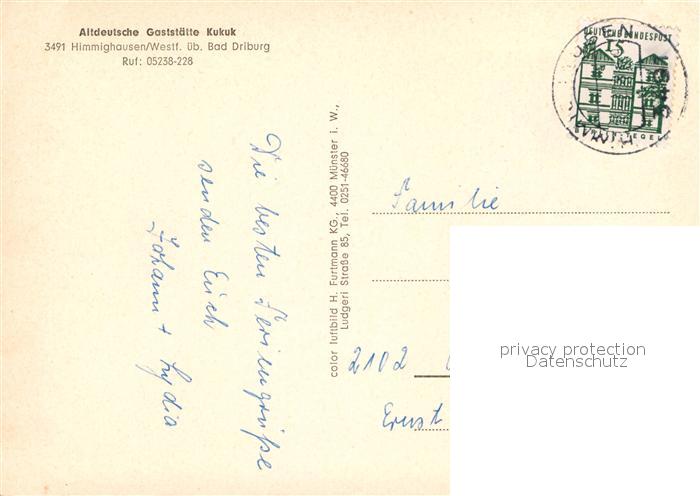 Altdeutsche Gaststätte Kukuk
3491 Himmighausen/Westf. üb. Bad Driburg
Ruf: 05238-228
Die besten Feriengrüße
senden Euch
Johann + Lydia
color luftbild H. Furtmann KG., 4400 Münster i. W.,
Ludgeri Straße 85, Tel. 0251-46680
DEUTSCHE BUNDESPOST
15
TEGEL
3491
Familie
2102
Ernst
privacy protection
Datenschutz